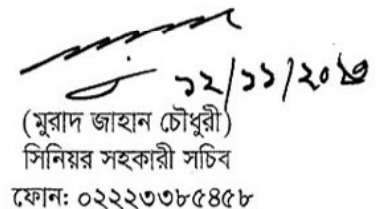 ১২/১১/২০
(মুরাদ জাহান চৌধুরী)
সিনিয়র সহকারী সচিব
ফোন: ০২২২৩৩৮৫৪৫৮